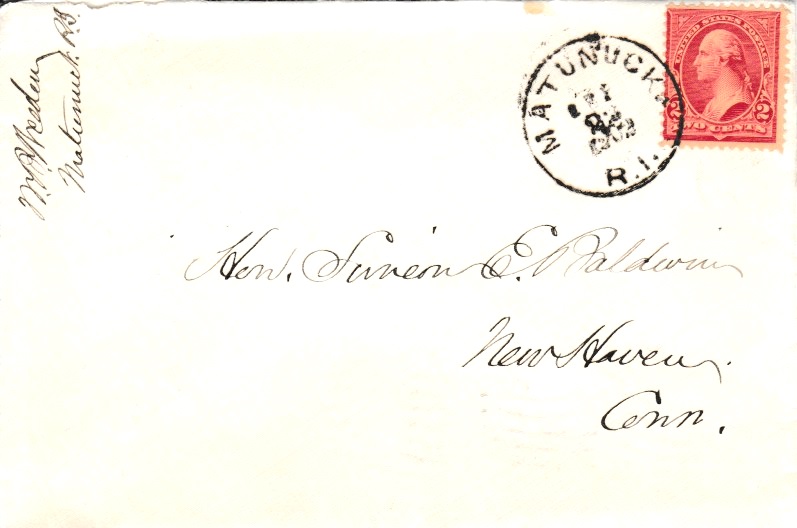 Weeden
Matunuck R.I.
MATUNUCK
R.I.
UNITED STATES POSTAGE
2 2
TWO CENTS
Hon. Simeon E. Baldwin
New Haven.
Conn.